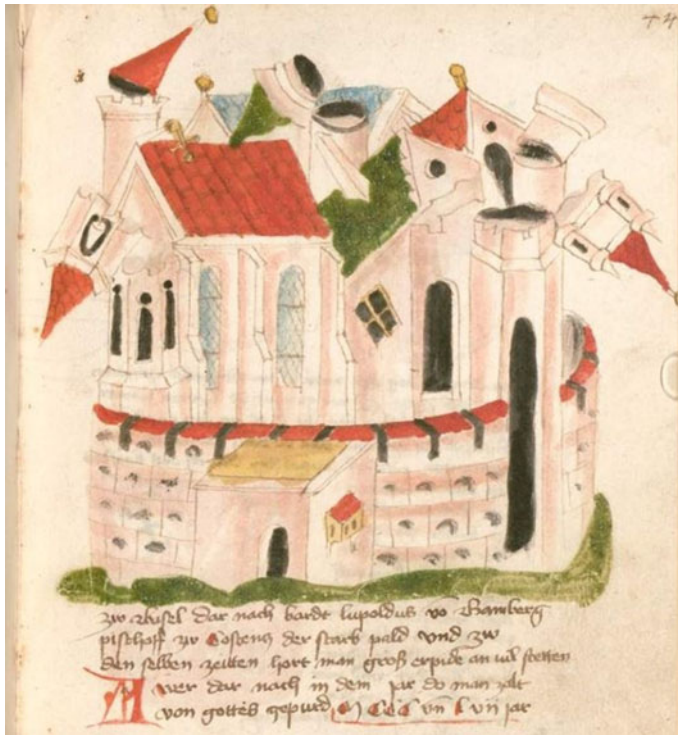 zw Busel dar nach bardt lupoldus vo Bamberg
pischoff zw Costenz der starb pald vnd zw
den selben zeitten hort man groß erpide an vil stetten
Aver dar nach in dem jar do man zalt
von gottes gepurd M CCC vnd L vii jar